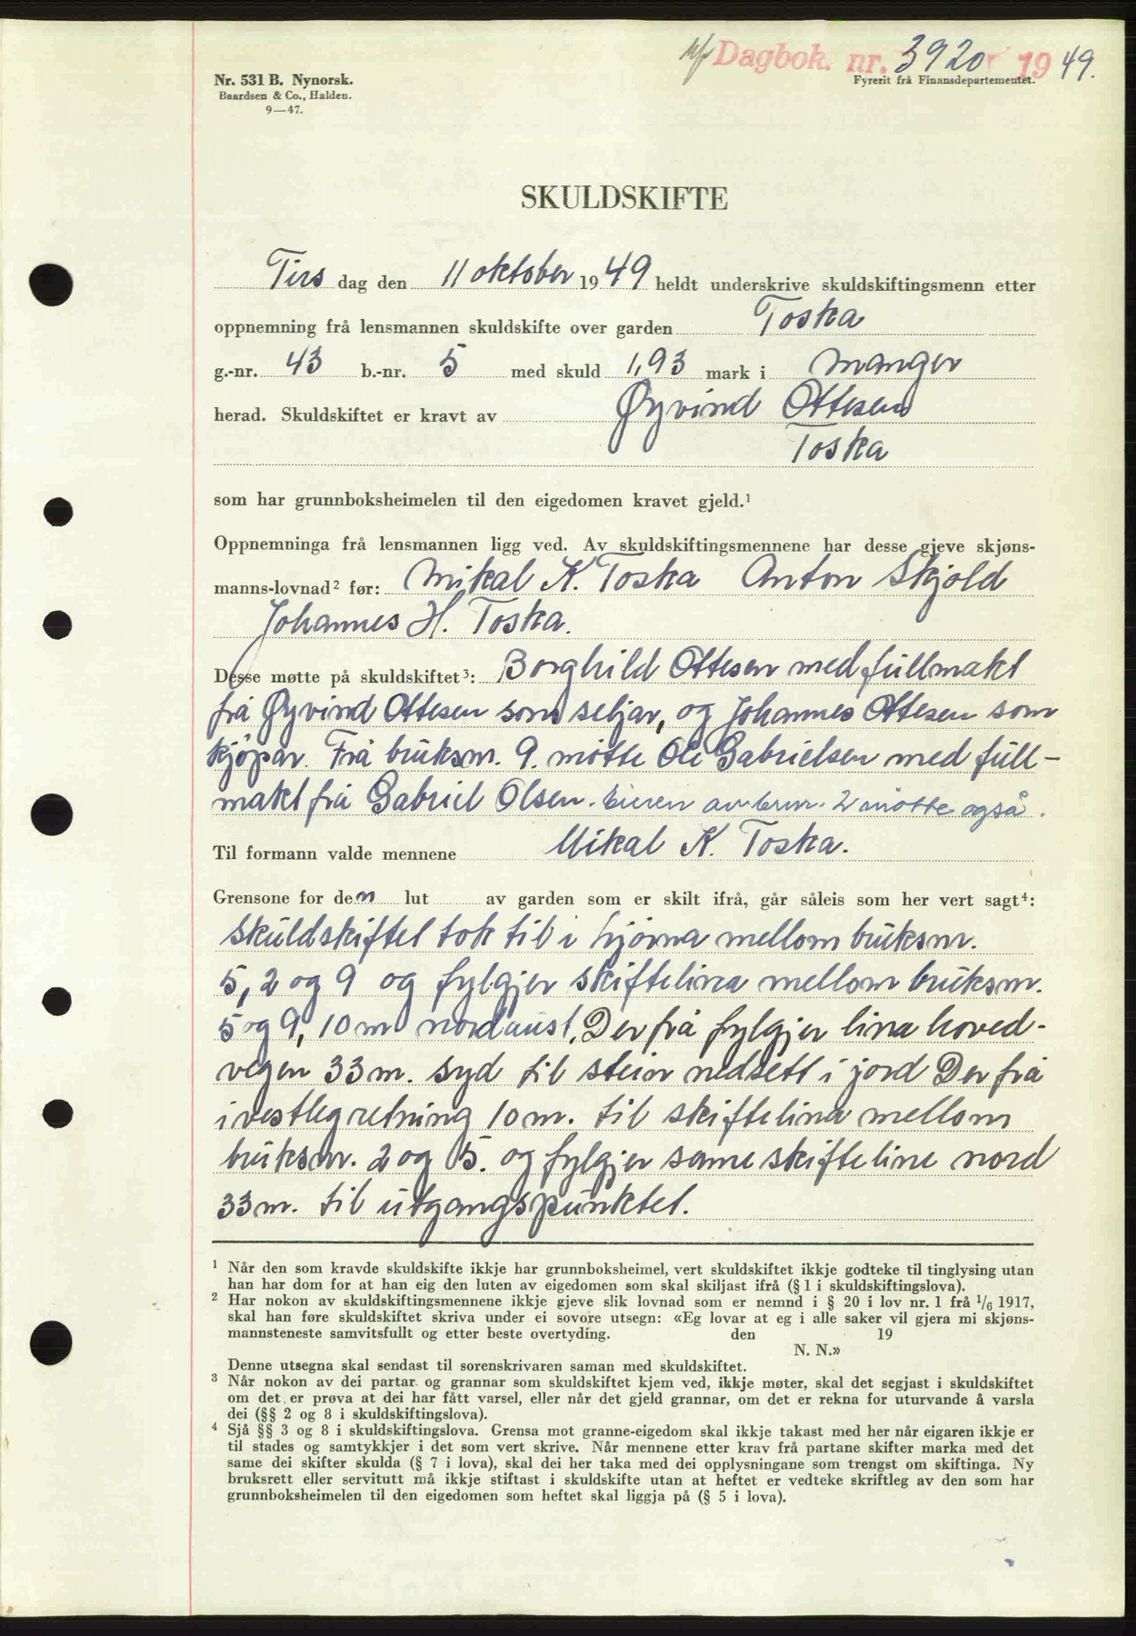 Mf Dagbok. nr. 3920 1949.
Nr. 531 B. Nynorsk.
Fyrerit frå Finansdepartementet.
Baardsen & Co., Halden.
9—47.
SKULDSKIFTE
Tirs dag den 11 oktober 1949 heldt underskrive skuldskiftingsmenn etter
oppnemning frå lensmannen skuldskifte over garden Toska
g.-nr. 43 b.-nr. 5 med skuld 1,93 mark i Manger
herad. Skuldskiftet er kravt av Øyvind Ottesen
Toska
som har grunnboksheimelen til den eigedomen kravet gjeld.¹
Oppnemninga frå lensmannen ligg ved. Av skuldskiftingsmennene har desse gjeve skjøns-
manns-lovnad² før: Mikal K. Toska Anton Skjold
Johannes H. Toska.
Desse møtte på skuldskiftet³: Borghild Ottesen med fullmakt
frå Øyvind Ottesen som seljar, og Johannes Ottesen som
kjøpar. Frå bruksnr. 9. møtte Ole Gabrielsen med full-
makt frå Gabriel Olsen. Eieren av brnr. 2 møtte også.
Til formann valde mennene Mikal K. Toska.
Grensone for den lut av garden som er skilt ifrå, går såleis som her vert sagt⁴:
Skuldskiftet tok til i hjørna mellom bruksnr.
5, 2 og 9 og fylgjer skiftelina mellom bruksnr.
5 og 9, 10 m nordaust. Derfrå fylgjer lina hoved-
vegen 33 m. syd til stein nedsett i jord Derfrå
i vestleg retning 10 m. til skiftelina mellom
bruksnr. 2 og 5. og fylgjer same skifteline nord
33 m. til utgangspunktet.
¹ Når den som kravde skuldskifte ikkje har grunnboksheimel, vert skuldskiftet ikkje godteke til tinglysing utan
han har dom for at han eig den luten av eigedomen som skal skiljast ifrå (§ 1 i skuldskiftingslova).
² Har nokon av skuldskiftingsmennene ikkje gjeve slik lovnad som er nemnd i § 20 i lov nr. 1 frå 1/6 1917,
skal han føre skuldskiftet skriva under ei sovore utsegn: «Eg lovar at eg i alle saker vil gjera mi skjøns-
mannsteneste samvitsfullt og etter beste overtyding. den 19
N. N.»
Denne utsegna skal sendast til sorenskrivaren saman med skuldskiftet.
³ Når nokon av dei partar og grannar som skuldskiftet kjem ved, ikkje møter, skal det segjast i skuldskiftet
om det er prøva at dei har fått varsel, eller når det gjeld grannar, om det er rekna for uturvande å varsla
dei (§§ 2 og 8 i skuldskiftingslova).
⁴ Sjå §§ 3 og 8 i skuldskiftingslova. Grensa mot granne-eigedom skal ikkje takast med her når eigaren ikkje er
til stades og samtykkjer i det som vert skrive. Når mennene etter krav frå partane skifter marka med det
same dei skifter skulda (§ 7 i lova), skal dei her taka med dei opplysningane som trengst om skiftinga. Ny
bruksrett eller servitutt må ikkje stiftast i skuldskifte utan at heftet er vedteke skriftleg av den som har
grunnboksheimelen til den eigedomen som heftet skal liggja på (§ 5 i lova).